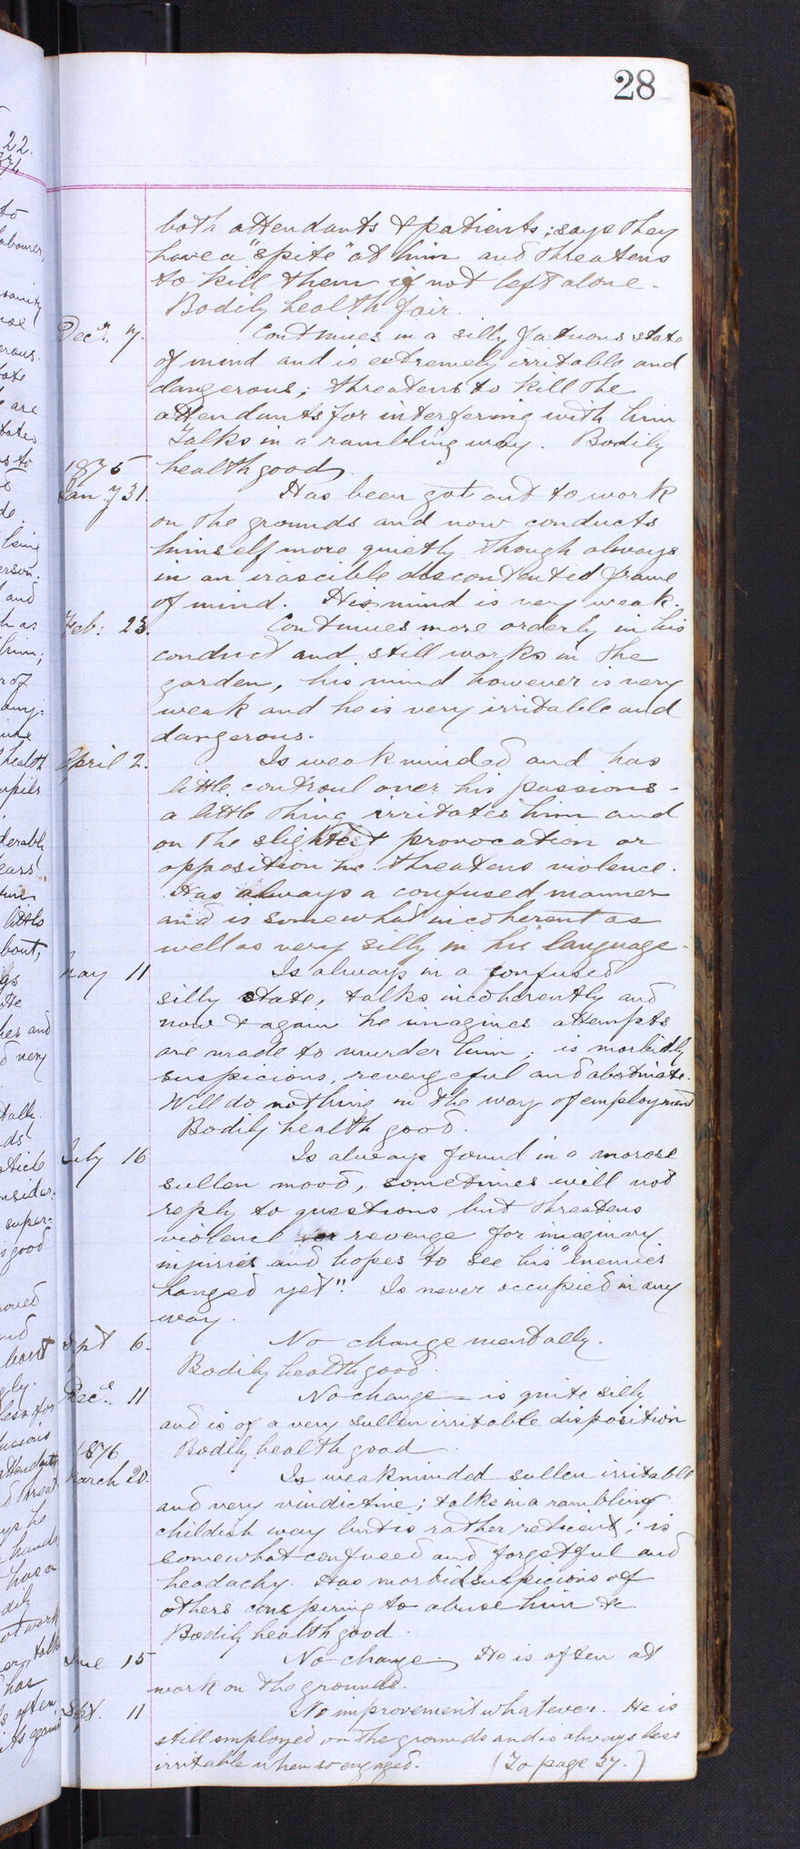 28
both attendants & patients; says they
have a "spite" at him and threatens
to kill them if not left alone.
Bodily health fair.
Decr. 7. Continues in a silly fatuous state
of mind and is extremely irritable and
dangerous; threatens to kill the
attendants for interfering with him
Talks in a rambling way. Bodily
1875 health good.
Jany 31 Has been got out to work
on the grounds and now conducts
himself more quietly though always
in an irascible discontented frame
of mind. His mind is very weak.
Feb: 23. Continues more orderly in his
conduct and still works in the
garden, his mind however is very
weak and he is very irritable and
dangerous.
April 2. Is weakminded and has
little controul over his passions -
a little thing irritates him and
on the slightest provocation or
opposition he threatens violence.
Has always a confused manner
and is somewhat incoherent as
well as very silly in his language.
May 11 Is always in a confused
silly state, talks incoherently and
now & again he imagines attempts
are made to murder him; is morbidly
suspicious, revengeful and obstinate.
Will do nothing in the way of employment
Bodily health good.
July 16 Is always found in a morose
sullen mood, sometimes will not
reply to questions but threatens
violence or revenge for imaginary
injuries and hopes to see his "enemies
hanged yet". Is never occupied in any
way.
Sept 6. No change mentally.
Bodily health good.
Decr. 11 No change - is quite silly
and is of a very sullen irritable disposition
1876 Bodily health good.
March 20. Is weakminded sullen irritable
and very vindictive; talks in a rambling
childish way but is rather reticent; is
somewhat confused and forgetful and
headachy. Has morbid suspicions of
others conspiring to abuse him &c
Bodily health good.
June 15 No change. He is often at
work on the grounds.
Sept. 11 No improvement whatever. He is
still employed on the grounds and is always less
irritable when so engaged. (To page 37.)